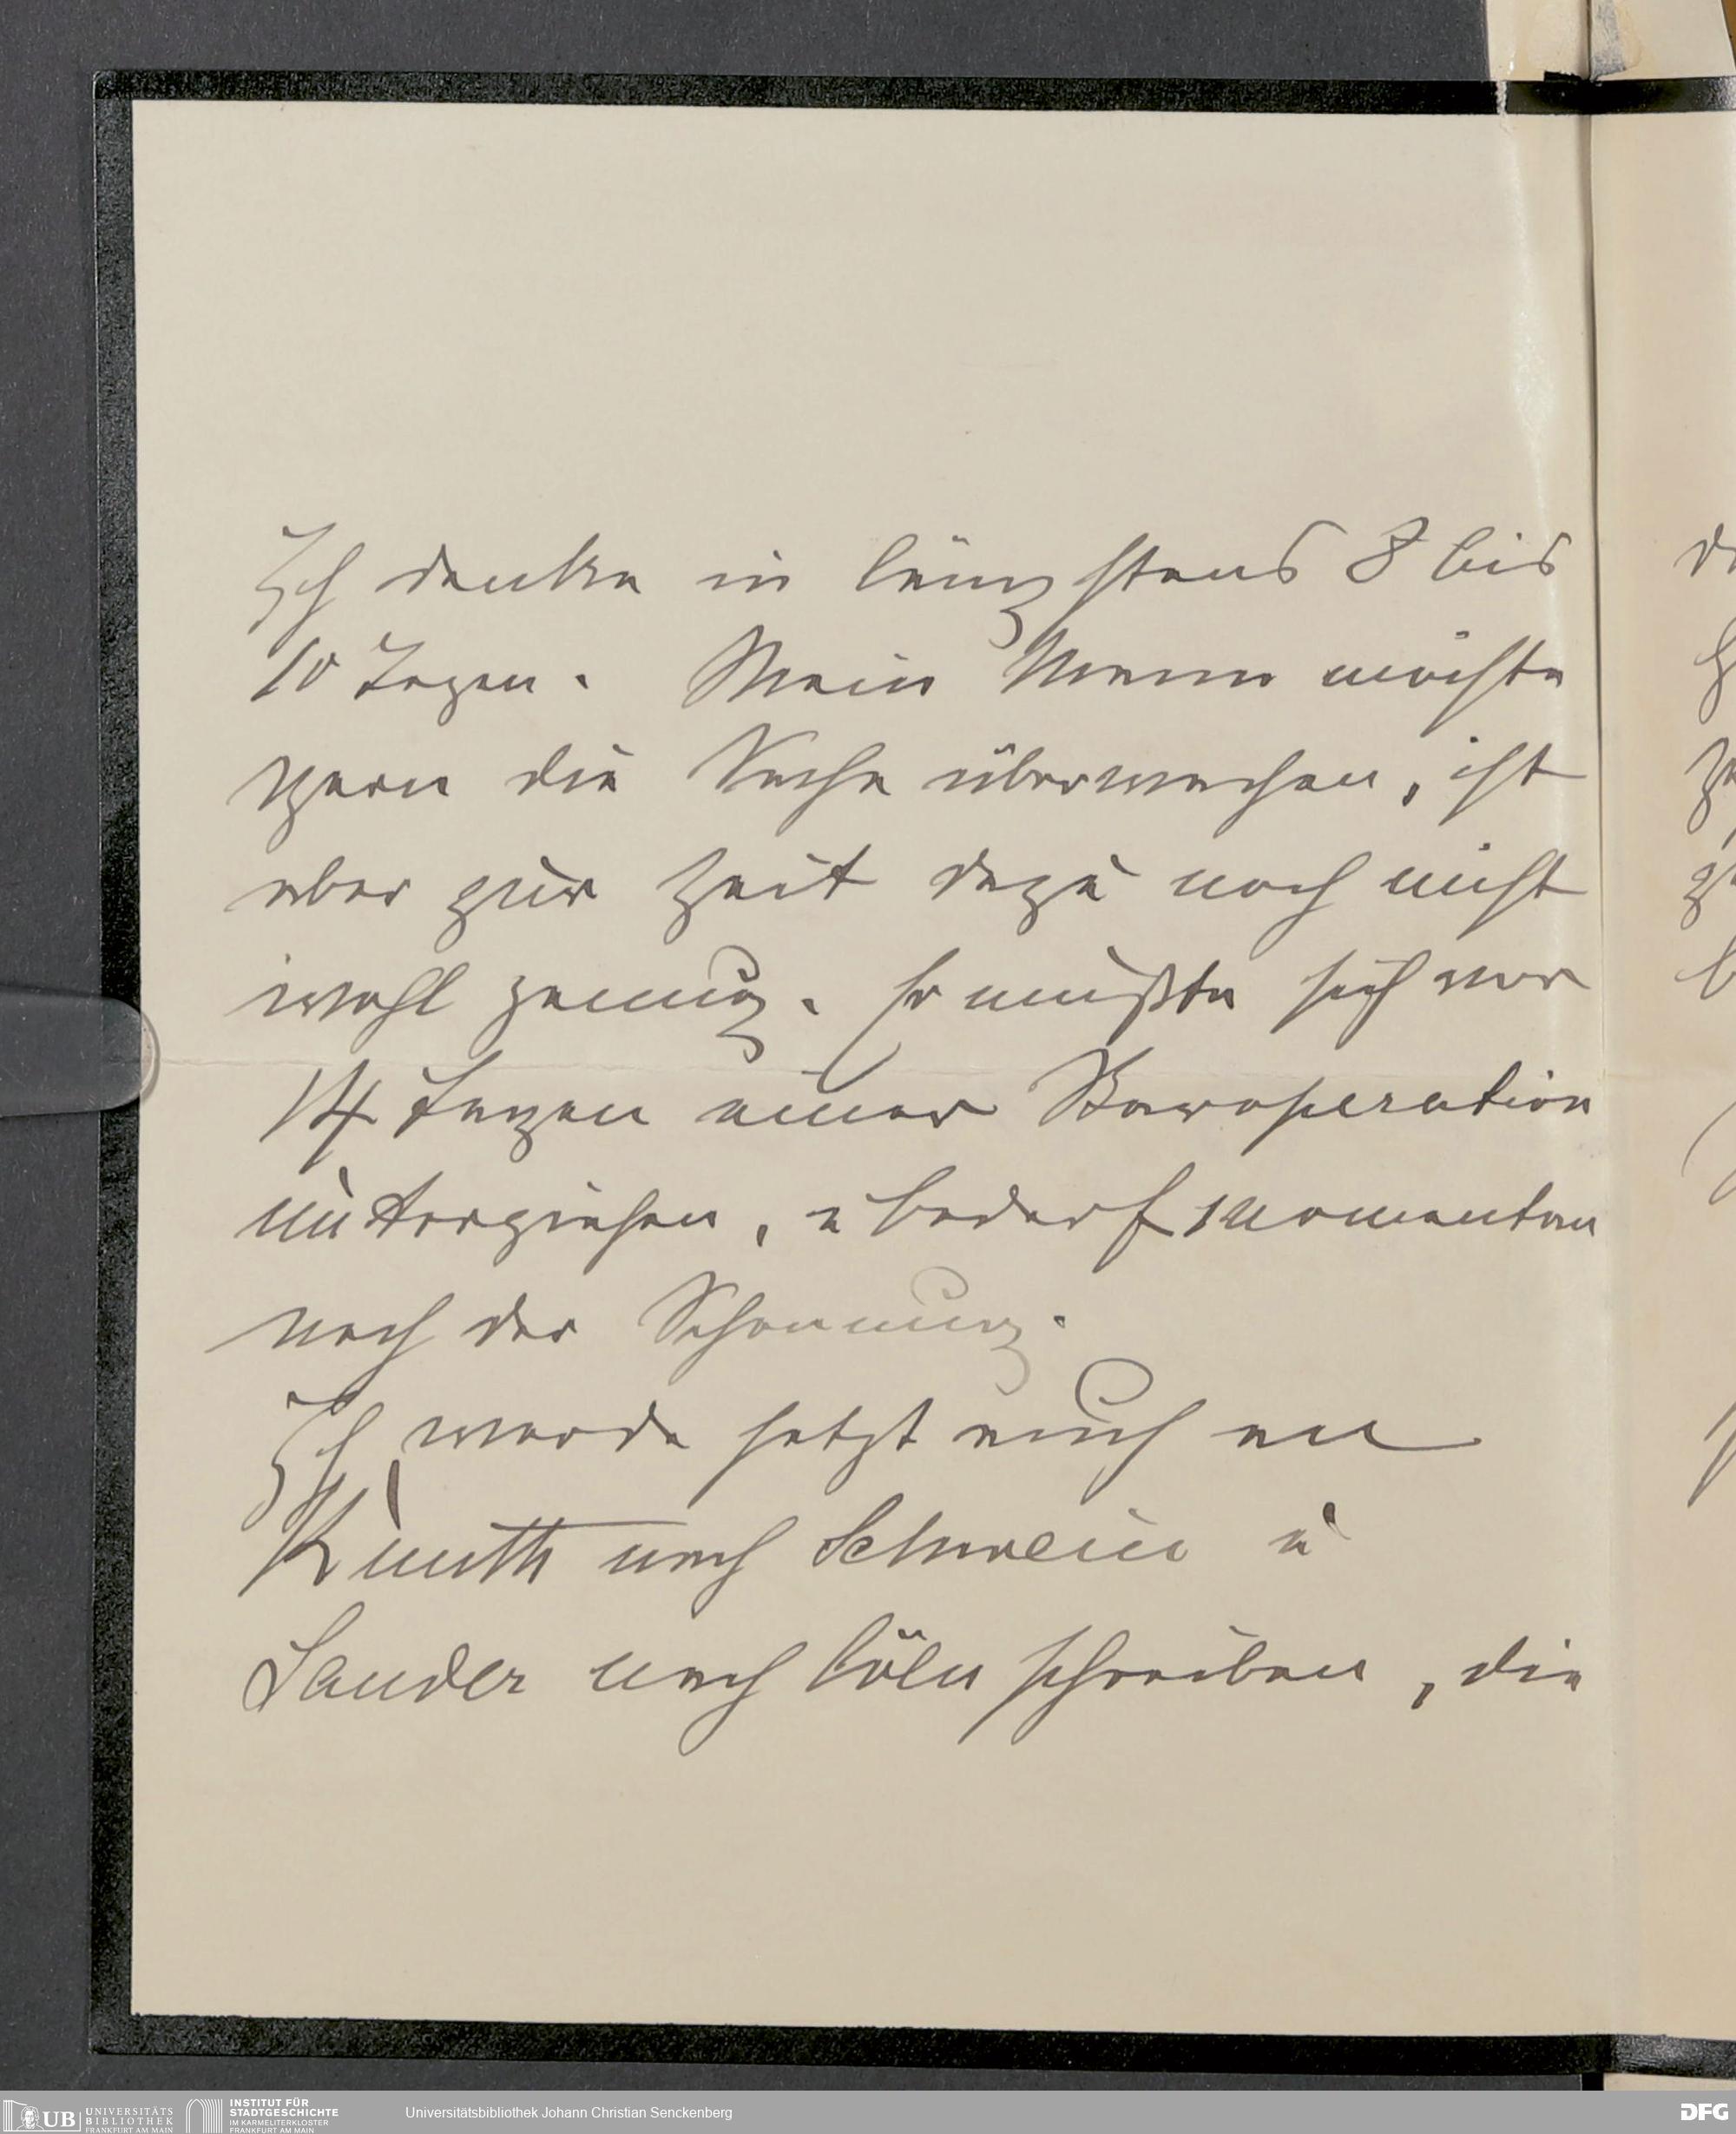 Ich denke in längstens 8 bis
10 Tagen. Mein Mann möchte
gern die Sache überwachen, ist
aber zur Zeit dazu noch nicht
wohl genug. Er mußte sich vor
14 Tagen einer Operation
unterziehen, u bedarf momentan
noch der Schonung.
Ich werde jetzt auch an
Knuth nach Schwerin u
Sander nach Cöln schreiben, die
UB UNIVERSITÄTS
BIBLIOTHEK
FRANKFURT AM MAIN
INSTITUT FÜR
STADTGESCHICHTE
IM KARMELITERKLOSTER
FRANKFURT AM MAIN
Universitätsbibliothek Johann Christian Senckenberg
DFG